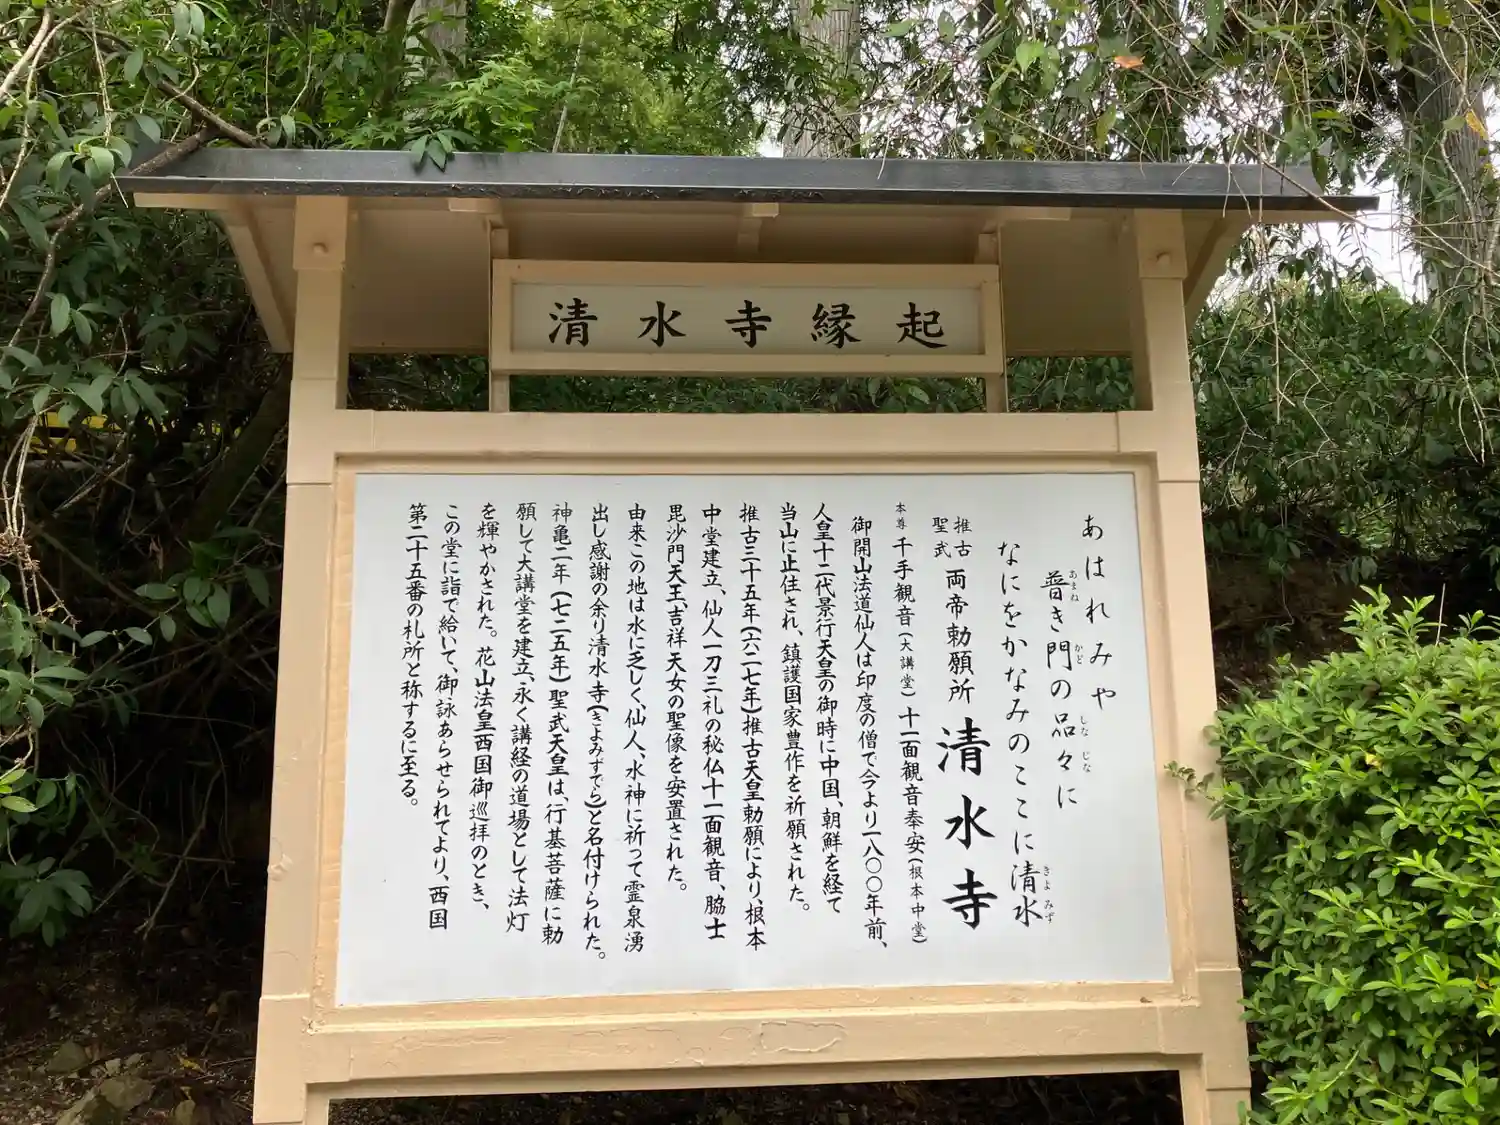 清水寺縁起
あはれみや
普き門の品々に
あまね
かど
しなじな
なにをかなみのここに清水
きよみず
推古
聖武
両帝勅願所 清水寺
本尊 千手観音(大講堂) 十一面観音奉安(根本中堂)
御開山法道仙人は印度の僧で今より一八〇〇年前、
人皇十二代景行天皇の御時に中国、朝鮮を経て
当山に止住され、鎮護国家豊作を祈願された。
推古三十五年(六二七年)推古天皇勅願により、根本
中堂建立、仙人一刀三礼の秘仏十一面観音、脇士
毘沙門天王、吉祥天女の聖像を安置された。
由来この地は水に乏しく、仙人、水神に祈って霊泉湧
出し感謝の余り清水寺(きよみずでら)と名付けられた。
神亀二年(七二五年)聖武天皇は、行基菩薩に勅
願して大講堂を建立、永く講経の道場として法灯
を輝やかされた。花山法皇西国御巡拝のとき、
この堂に詣で給いて、御詠あらせられてより、西国
第二十五番の札所と称するに至る。